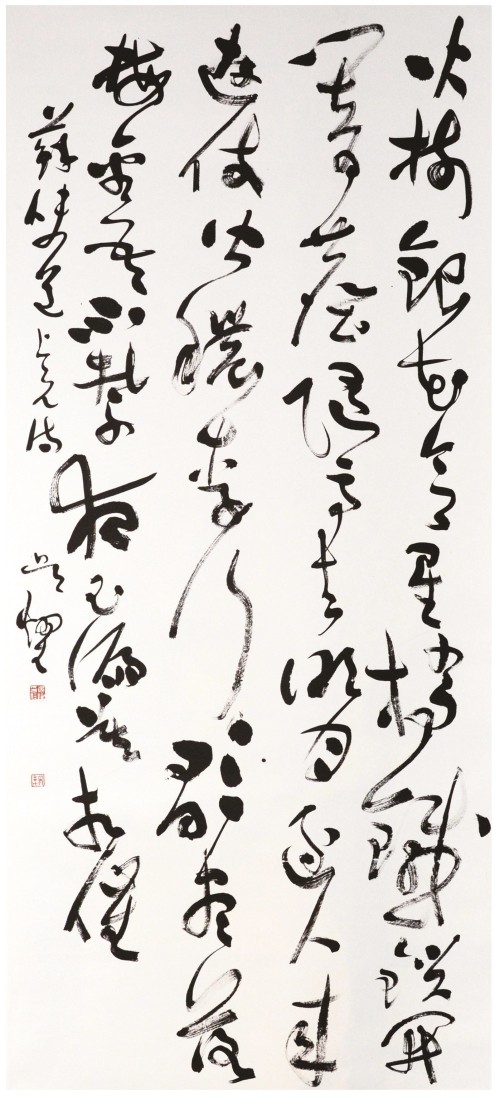 火樹銀花合星橋鐵鎖開
闇塵隨馬去明月逐人來
遊伎皆穠李行歌盡落
梅金吾不禁夜玉漏莫相催
蘇味道上元詩